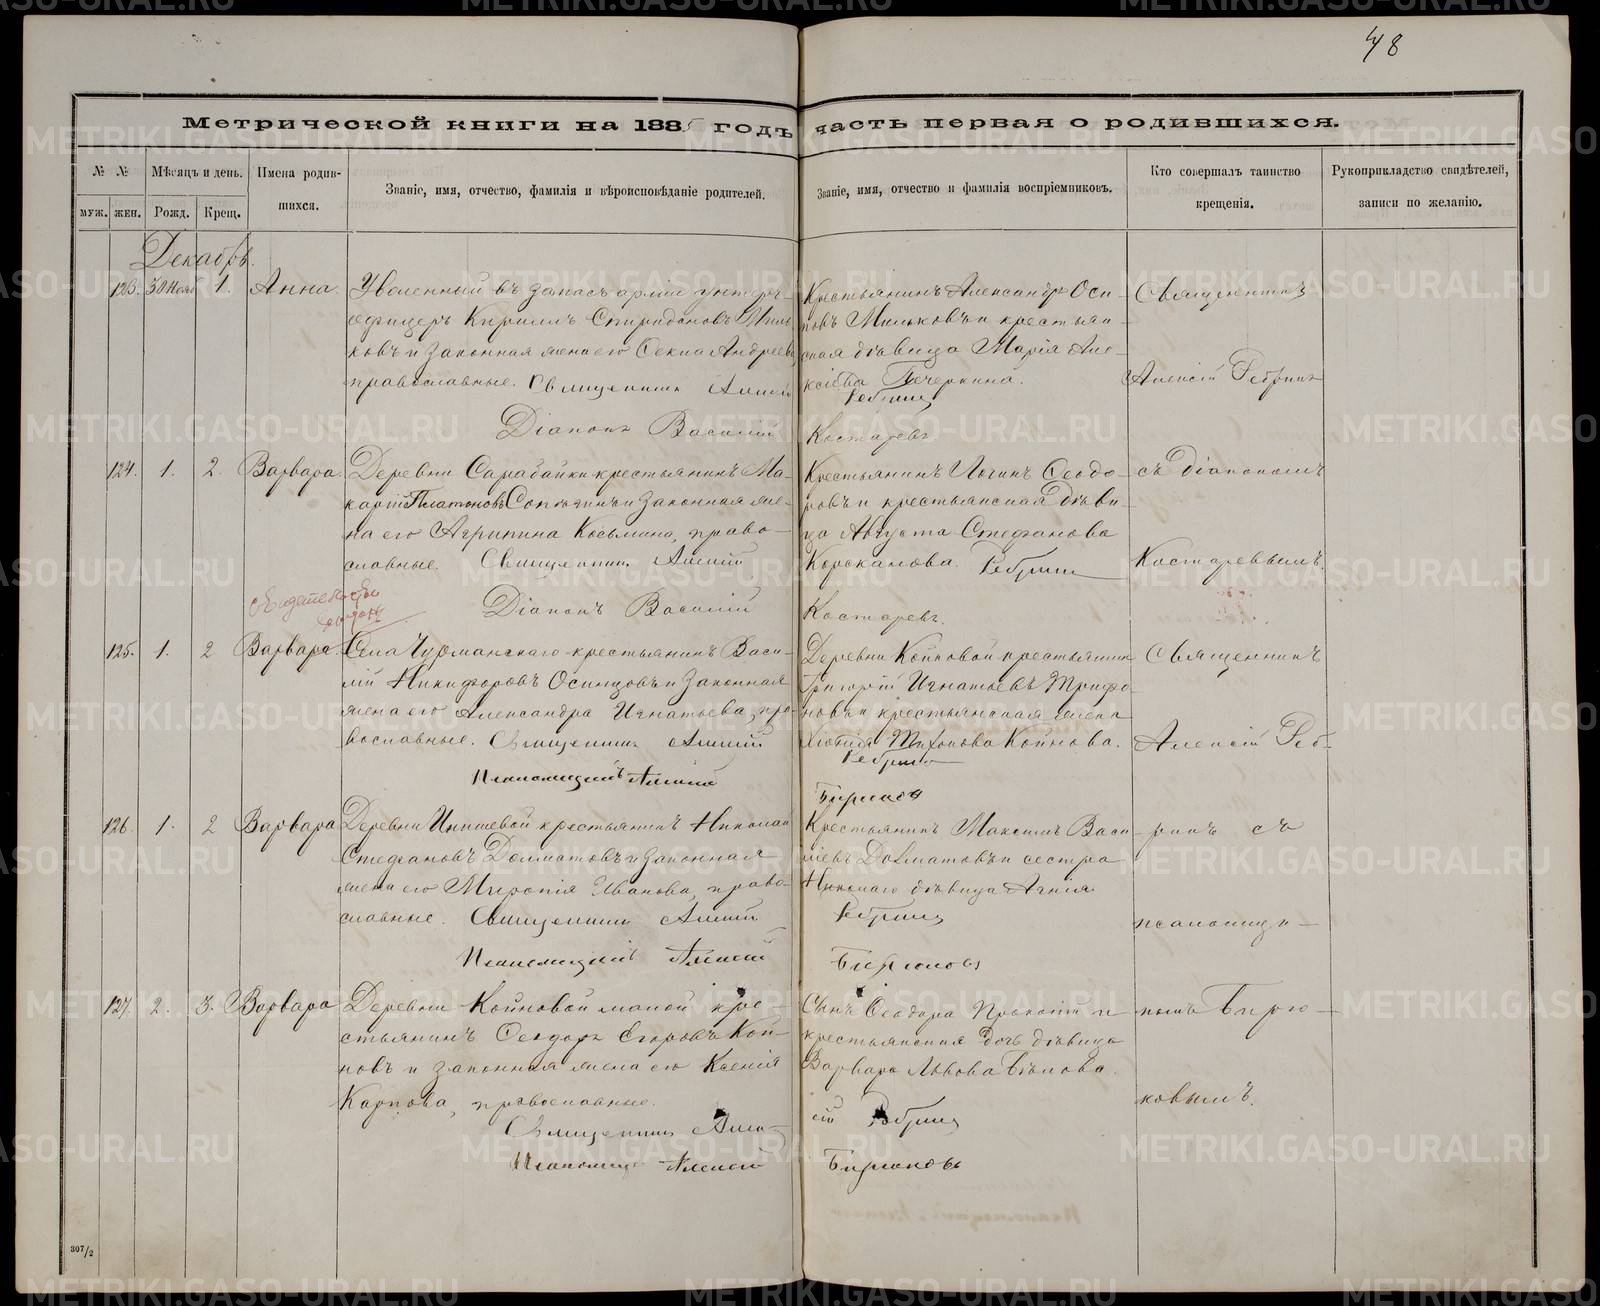 48
Метрической книги на 1885 годъ часть первая о родившихся.
№ №
муж. жен.
Мѣсяцъ и день.
Рожд. Крещ.
Имена родив-
шихся.
Званіе, имя, отчество, фамилія и вѣроисповѣданіе родителей.
Званіе, имя, отчество и фамилія воспріемниковъ.
Кто совершалъ таинство
крещенія.
Рукоприкладство свидѣтелей,
записи по желанію.
Декабрь.
123. 30 Нояб 1. Анна.
Уволенный въ запасъ арміи унтеръ-
офицеръ Кириллъ Спиридоновъ Миль
ковъ и законная жена его Андреева
православные. Священникъ Алексій
Діаконъ Василій
Крестьянинъ Александръ Оси-
повъ Мильковъ и крестьян-
ская дѣвица Марія Але-
ксіева Печеркина.
Ребринъ
Костаревъ.
Священникъ
Алексій Ребринъ
124. 1. 2. Варвара.
Деревни Сарабайки крестьянинъ Ма-
карій Платоновъ и законная же-
на его Агрипина Косьмина, право-
славные. Священникъ Алексій
Діаконъ Василій
Крестьянинъ Логинъ Ѳеодо-
ровъ и крестьянская дѣви-
ца Августа Стефанова
Корсканова. Ребринъ
Костаревъ.
съ діакономъ
Костаревымъ.
125. 1. 2 Варвара.
Села Чурманскаго крестьянинъ Васи-
лій Никифоровъ Осинцовъ и законная
жена его Александра Игнатьева, пра-
вославные. Священникъ Алексій
Псаломщикъ Алексій
Деревни Койновой крестьянинъ
Григорій Игнатьевъ Трифо-
новъ и крестьянская жена
Тихонова Койнова.
Ребринъ
Бирюковъ
Священникъ
Алексій Реб-
126. 1. 2 Варвара
Деревни крестьянинъ Николай
Стефановъ Долматовъ и законная
жена его Миропія Иванова, право-
славные. Священникъ Алексій
Псаломщикъ Алексій
Крестьянинъ Максимъ Васи-
ліевъ Долматовъ и сестра
Николаго дѣвица Агнія
Ребринъ
Бирюковъ
ринъ съ
псаломщи-
127. 2. 3. Варвара
Деревни Койновой малой кре-
стьянинъ Ѳеодоръ Егоровъ Кой-
новъ и законная жена его Ксенія
Карпова, православные.
Священникъ Алек-
Псаломщ Алексій
Сынъ Ѳеодора Прокопій и
крестьянская дочь дѣвица
Варвара Львова Бѣлова.
сій Ребринъ
Бирюковъ
комъ Бирю-
ковымъ.
307/2